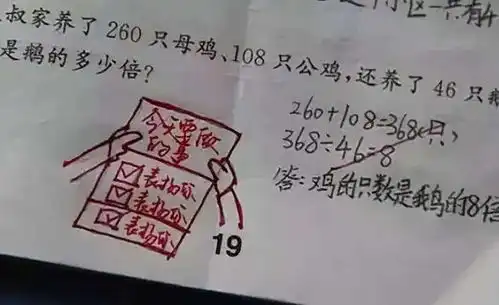 小区一共有4
叔家养了260只母鸡、108只公鸡，还养了46只
是鹅的多少倍？
260+108=368(只)
368÷46=8
答：鸡的只数是鹅的8倍
今天要做
的事
表扬你
表扬你
表扬你
19